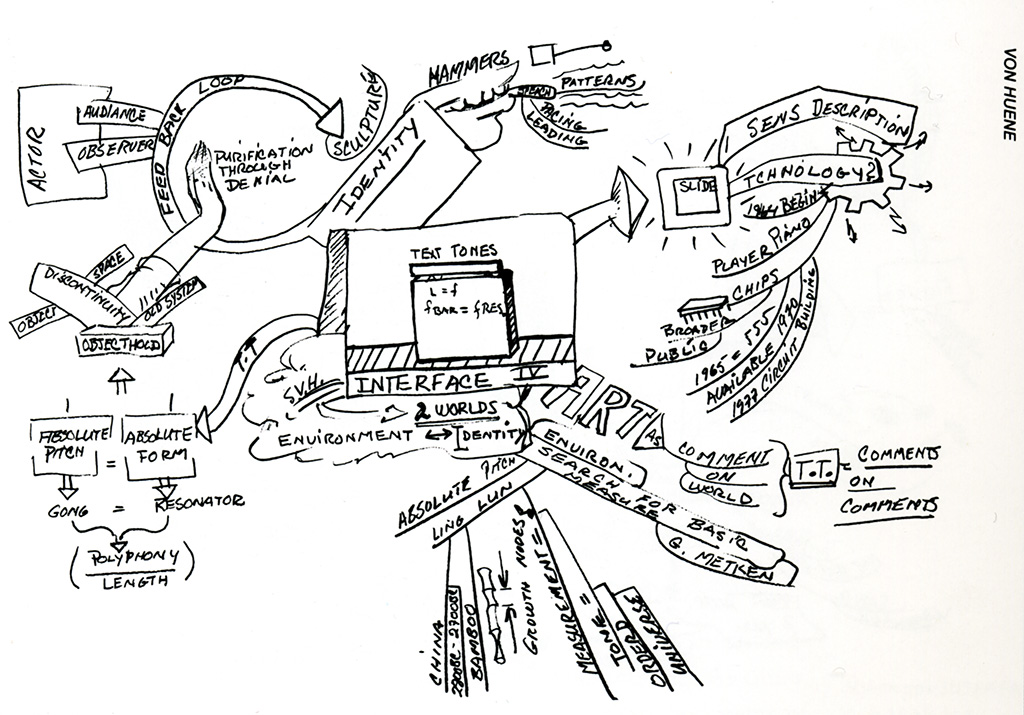 VON HUENE
ACTOR
AUDIANCE
OBSERVER
FEED BACK LOOP
SCULPTURE
PURIFICATION
THROUGH
DENIAL
IDENTITY
HAMMERS
SPEACH
PATTERNS
PACING
LEADING
SLIDE
SENS DESCRIPTION
TCHNOLOGY?
1964 BEGIN
PLAYER PIANO
CHIPS
BROADER
PUBLIC
1965 = 555
AVAILABLE 1970
1977 CIRCUIT
BUILDING
TEXT TONES
L = f
f BAR = f RES.
INTERFACE IV
DISCONTINUIM
SPACE
OBJECT
OLD SYSTEM
OBJECTHOLD
T.T
S.V.H.
2 WORLDS
ENVIRONMENT ↔ IDENTITY
ABSOLUTE
PITCH
=
ABSOLUTE
FORM
GONG = RESONATOR
(POLYPHONY
LENGTH)
ART
AS
COMMENT
ON
WORLD
T.T. = COMMENTS
ON
COMMENTS
ENVIRON.
SEARCH FOR BASIC
MEASURE
G. METKEN
ABSOLUTE PITCH
LING LUN
CHINA
BAMBOO
GROWTH NODES?
MEASUREMENT =
MEASURE =
TONE
ORDERD
UNIVERSE